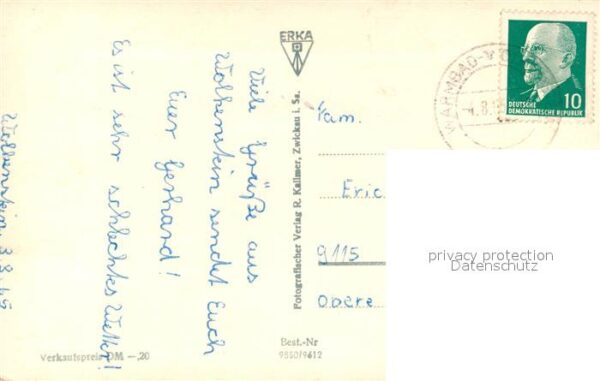 Wolkenstein, 3.8.65
Viele Grüße aus
Wolkenstein sendet Euch
Euer Gerhard!
Es ist sehr schlechtes Wetter!
ERKA
Fotografischer Verlag R. Kallmer, Zwickau i. Sa.
Verkaufspreis DM —,20
Best.-Nr
9880/9612
WARMBAD-
4.8.
DEUTSCHE
DEMOKRATISCHE REPUBLIK
10
Fam.
Eric
9115
Obere
privacy protection
Datenschutz